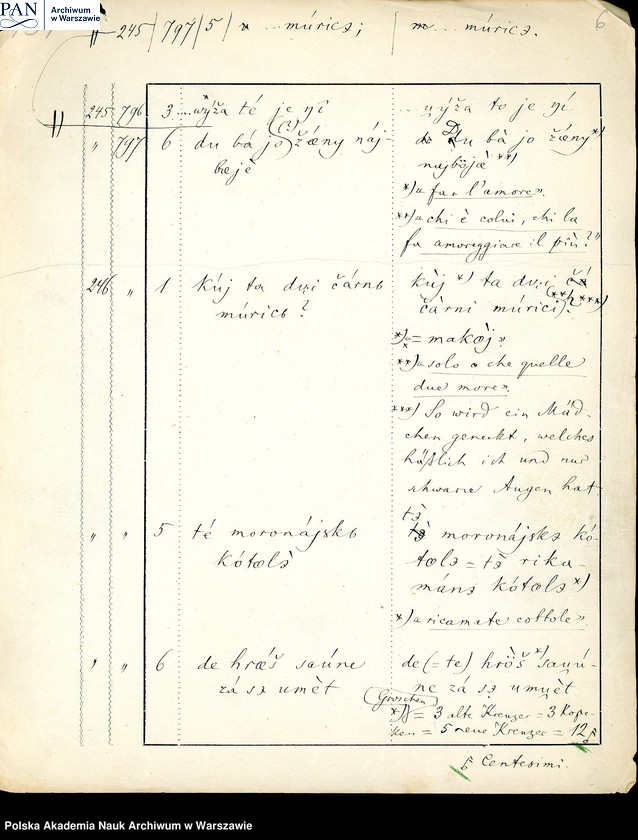 PAN
Archiwum
w Warszawie
245 | 797 | 5 | múricɜ; | múricɜ.
6
245 796 3 ...wýža té je ńi ...uýža to je ńí
" 797 6 du bá jo žǽny náj- Du bà jo žǽny*)
bæjè najböjæ̀ **)
*) "far l'amore".
**) "chi è colui, chi la
fa amoreggiare il più?"
246 " 1 kúj ta dvi čárnь kùj *) ta dvi
múricь? čàrni múrici (**) ***)?
*) = makòj"
**) "solo che quelle
due more".
***) So wird ein Mäd-
chen geneckt, welches
häßlich ist und nur
schwarze Augen hat
" " 5 té moronájskь tɜ̀ moronájskɜ kó-
kótœlɜ̀ tœlɜ = tɜ̀ rika-
mánɜ kótœlɜ *)
*) "ricamate cottole".
" " 6 de hræ̀š saúne de (= te) hrö̀š *) sauú-
zá sɜ umèt ne zá sɜ umyèt
(Groschen)
*) = 3 alte Kreuzer = 3 Kope-
ken = 5 neue Kreuzer = 12
Centesimi.
Polska Akademia Nauk Archiwum w Warszawie